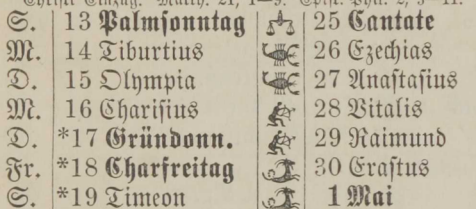 Christi Einzug. Matth. 21, 1–9. Epist. Phil. 2, 5–11.
S. 13 Palmsonntag 25 Cantate
M. 14 Tiburtius 26 Ezechias
D. 15 Olympia 27 Anastasius
M. 16 Charisius 28 Vitalis
D. *17 Gründonn. 29 Raimund
Fr. *18 Charfreitag 30 Erastus
S. *19 Timeon 1 Mai